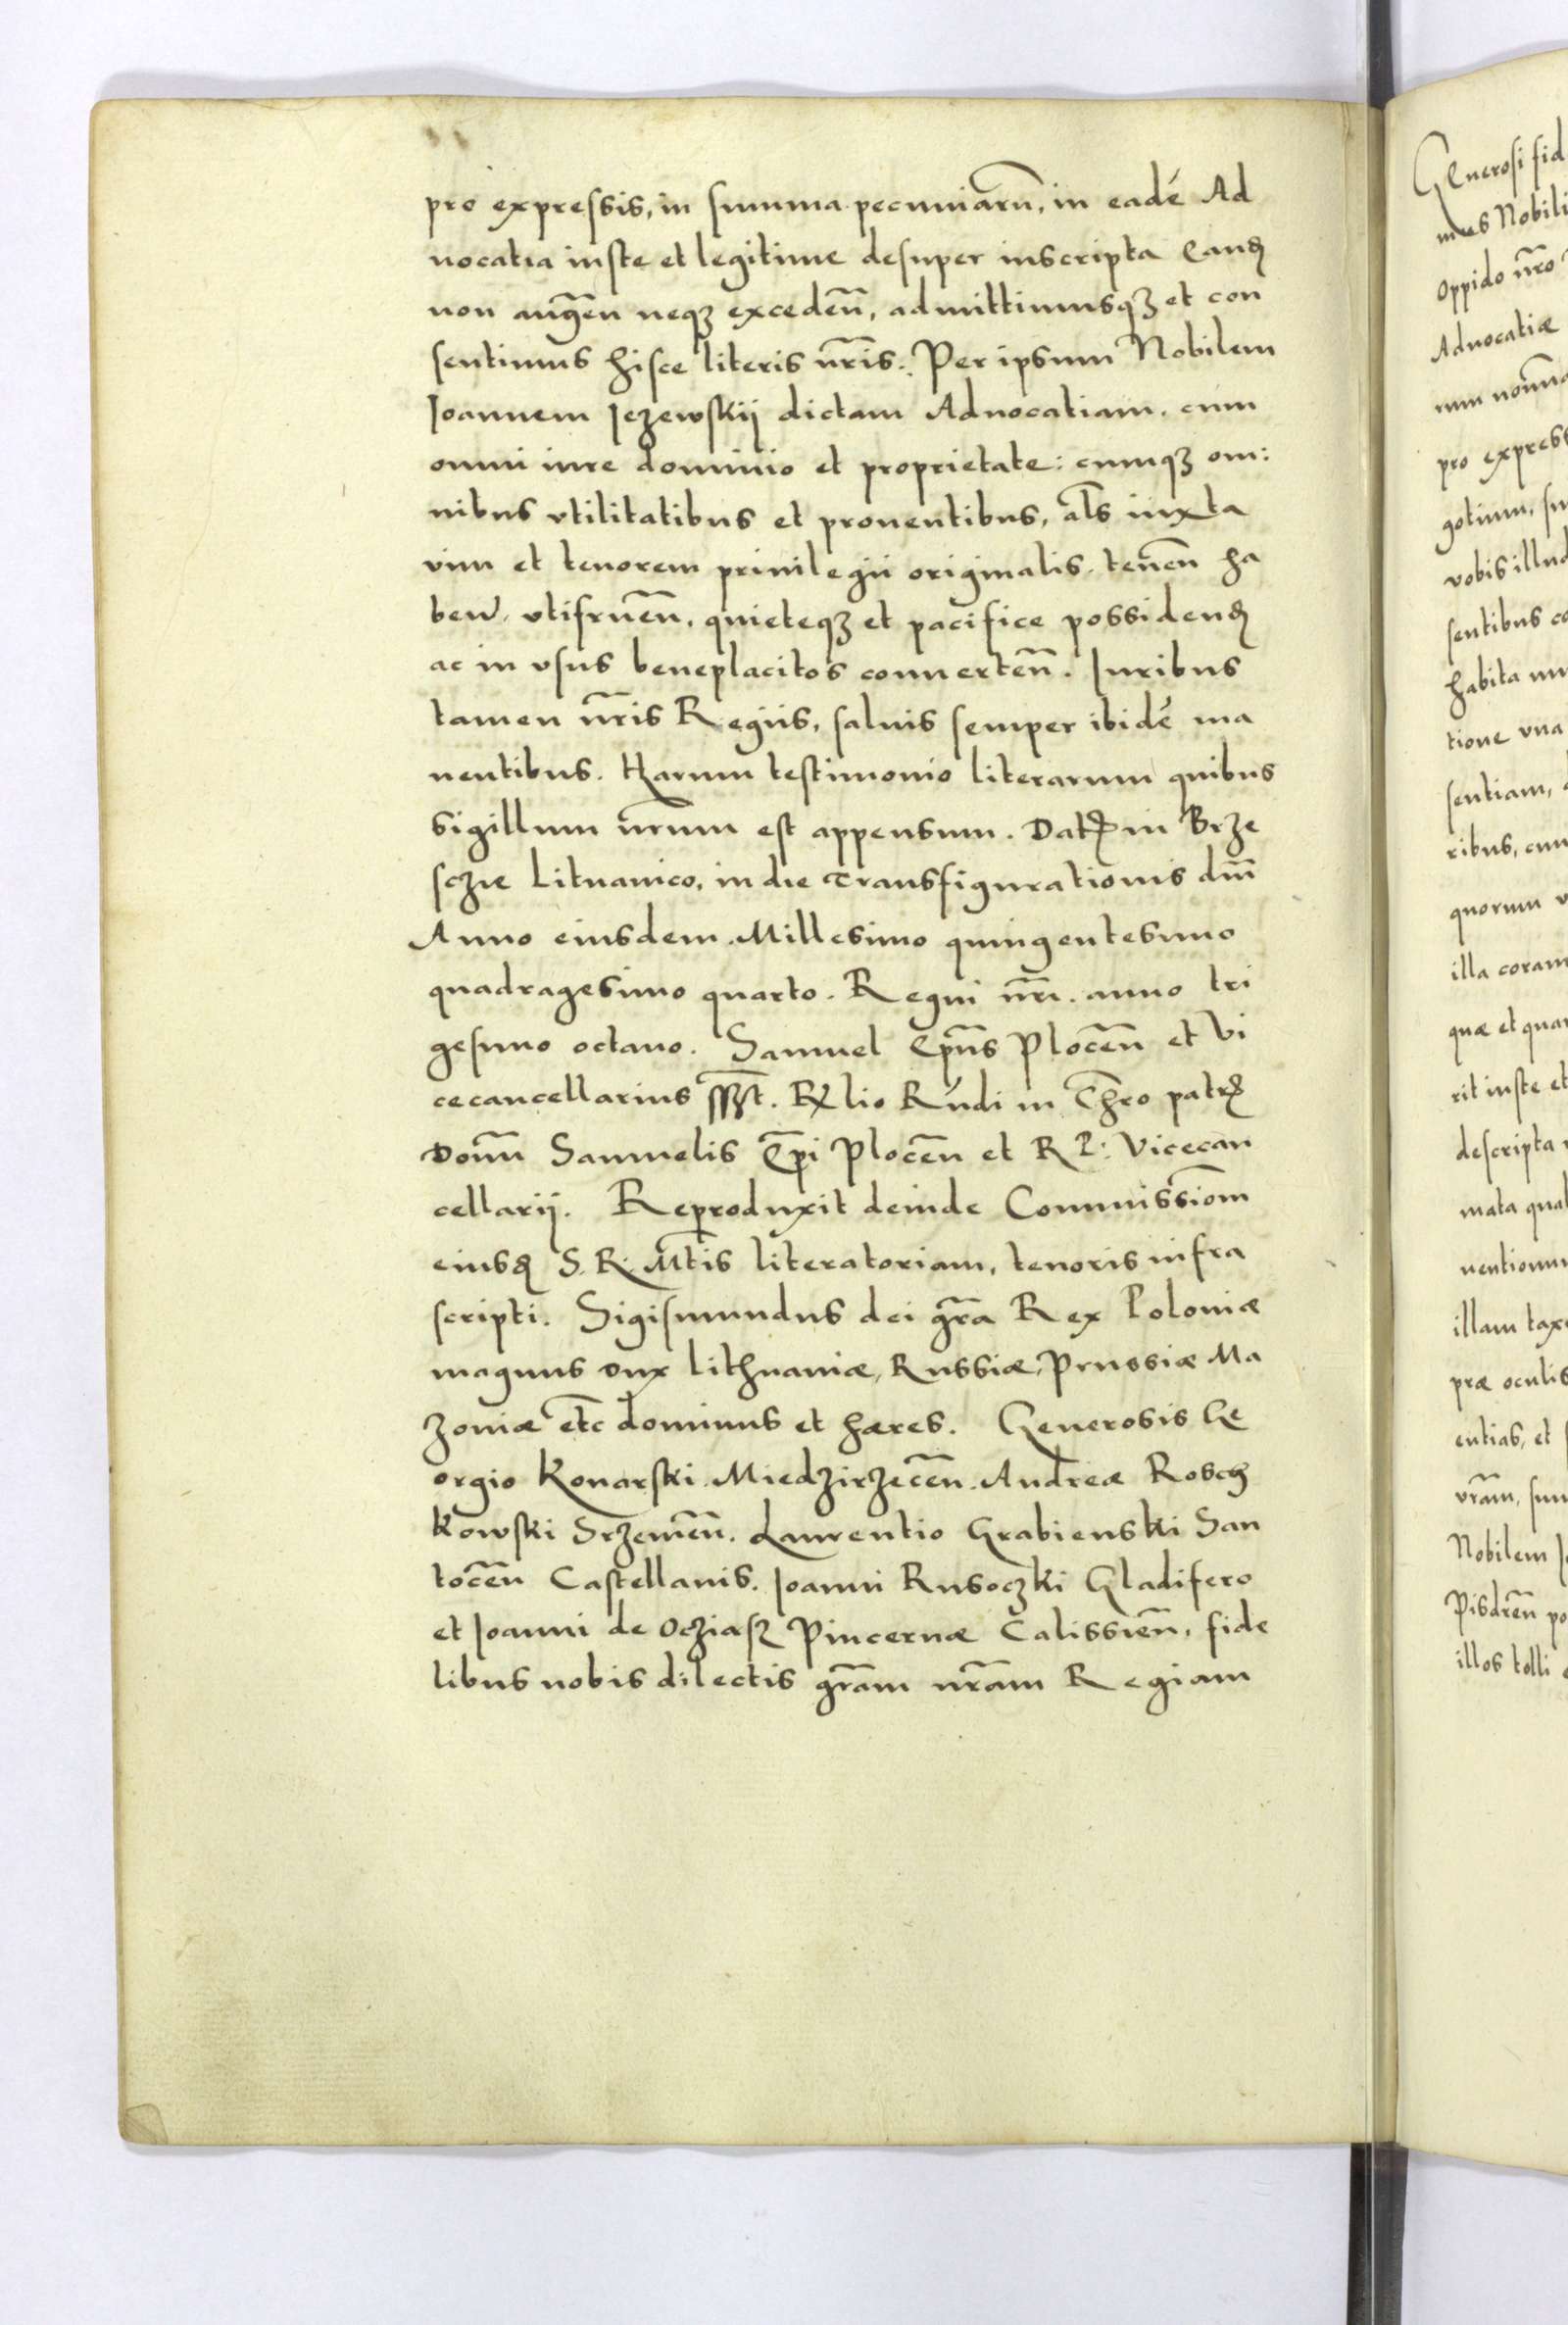 pro expressis, in summa pecuniarū, in eadē Ad
uocatia iuste et legitime desuper inscripta Eandꝫ
non augēn neqꝫ excedēn, admittimusqꝫ et con
sentimus hisce literis nr̄is. Per ipsum Nobilem
Joannem Jezewskij dictam Aduocatiam. cum
omni iure dominio et proprietate: cumqꝫ om:
nibus vtilitatibus et prouentibus, als̄ iuxta
vim et tenorem priuilegii originalis. tenēn ha
ben̄. vtifruēn. quieteqꝫ et pacifice possidendꝫ
ac in vsus beneplacitos conuertēn. Juribus
tamen nr̄is Regiis, saluis semper ibidē ma
nentibus. Harum testimonio literarum quibus
sigillum nr̄um est appensum. Datꝫ in Brze
sczie Lituanico, in die Transfigurationis dn̄i
Anno eiusdem. Millesimo quingentesimo
quadragesimo quarto. Regni nr̄i. anno tri
gesimo octauo. Samuel Ep̄us Ploceñ et Vi
cecancellarius sszt. Rlio Rndi in Chr̄o patrꝫ
Domn̄ Samuelis Ep̄i Ploceñ et R P: Vicecan
cellarij. Reproduxit deinde Commissiom̄
eiusdꝫ S. R. Mt̄is literatoriam, tenoris infra
scripti. Sigismundus dei gr̄a Rex Poloniæ
magnus Dux Lithuaniæ, Russiæ, Prussiæ Ma
zoniæ etc̄ dominus et hæres. Generosis Ge
orgio Konarski Miedzirzecēn. Andreæ Roscz
kowski Srzemēn. Laurentio Grabienski San
tocēn Castellanis. Joanni Rusoczki Gladifero
et Joanni de Ocziasz Pincernæ Calissien̄. fide
libus nobis dilectis gr̄am nr̄am Regiam
Generosi fid
mus Nobili
Oppido nr̄o
Aduocatiæ
rum nom̄a
pro express
gotium, su
vobis illud
sentibus co
habita
tione vna
sentiam,
ribus, cum
quorum v
illa coram
quæ et quar
rit iuste et
descripta
mata qual
uentionum
illam taxe
præ oculis
entias, et
vr̄am, sum
Nobilem J
Pisdrēn po
illos tolli